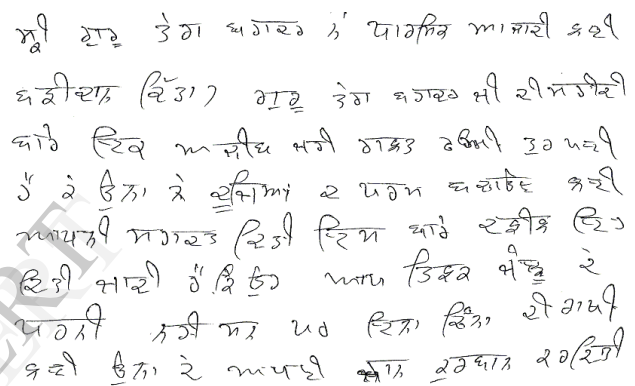 ਸ੍ਰੀ ਗੁਰੂ ਤੇਗ ਬਹਾਦਰ ਨੇ ਧਾਰਮਿਕ ਆਜਾਦੀ ਲਈ
ਬਲੀਦਾਨ ਦਿੱਤਾ। ਗੁਰੂ ਤੇਗ ਬਹਾਦਰ ਜੀ ਦੀ ਸ਼ਹੀਦੀ
ਬਾਰੇ ਇਕ ਅਜੀਬ ਜਹੀ ਗਲਤ ਫਹਿਮੀ ਤੁਰ ਪਈ
ਹੈ ਕੇ ਉਨਾ ਨੇ ਦੂਜਿਆਂ ਦ ਧਰਮ ਬਚਾਉਣ ਲਈ
ਆਪਣੀ ਸਹਾਦਤ ਦਿਤੀ ਇਸ ਬਾਰੇ ਦਲੀਲ ਇਹ
ਦਿਤੀ ਜਾਦੀ ਹੈ ਕਿ ਉਹ ਆਪ ਤਿਲਕ ਜੰਞੂ ਦੇ
ਧਾਰਨੀ ਨਹੀ ਸਨ ਪਰ ਇਨਾ ਚਿੰਨਾ ਦੀ ਰਾਖੀ
ਲਈ ਉਨਾ ਨੇ ਆਪਣੀ ਜਾਨ ਕੁਰਬਾਨ ਕਰ ਦਿਤੀ